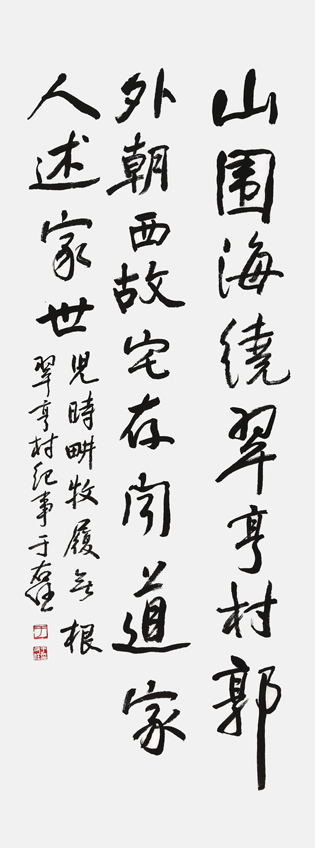 山围海繞翠亨村郭
外朝西故宅存聞道家
人述家世
兒時畊牧履無根
翠亨村紀事于右任